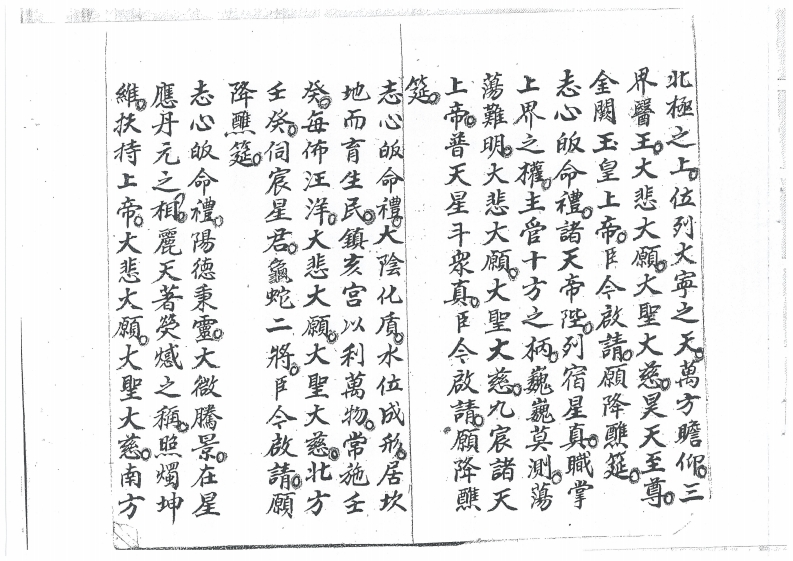 北極之上。位列大寧之天。萬方瞻仰。三
界醫王。大悲大願。大聖大慈。昊天至尊。
金闕玉皇上帝。臣今啟請。願降醮筵。
志心皈命禮。諸天帝陛。列宿星真。職掌
上界之權。主管十方之柄。巍巍莫測。蕩
蕩難明。大悲大願。大聖大慈。九宸諸天
上帝。普天星斗衆真。臣今啟請。願降醮
筵。
志心皈命禮。大陰化質。水位成形。居坎
地而育生民。鎮亥宮以利萬物。常施壬
癸。每佈汪洋。大悲大願。大聖大慈。北方
壬癸。伺宸星君。龜蛇二將。臣今啟請。願
降醮筵。
志心皈命禮。陽德秉靈。大微騰景。在星
應丹元之相。麗天著熒惑之稱。照燭坤
維。扶持上帝。大悲大願。大聖大慈。南方